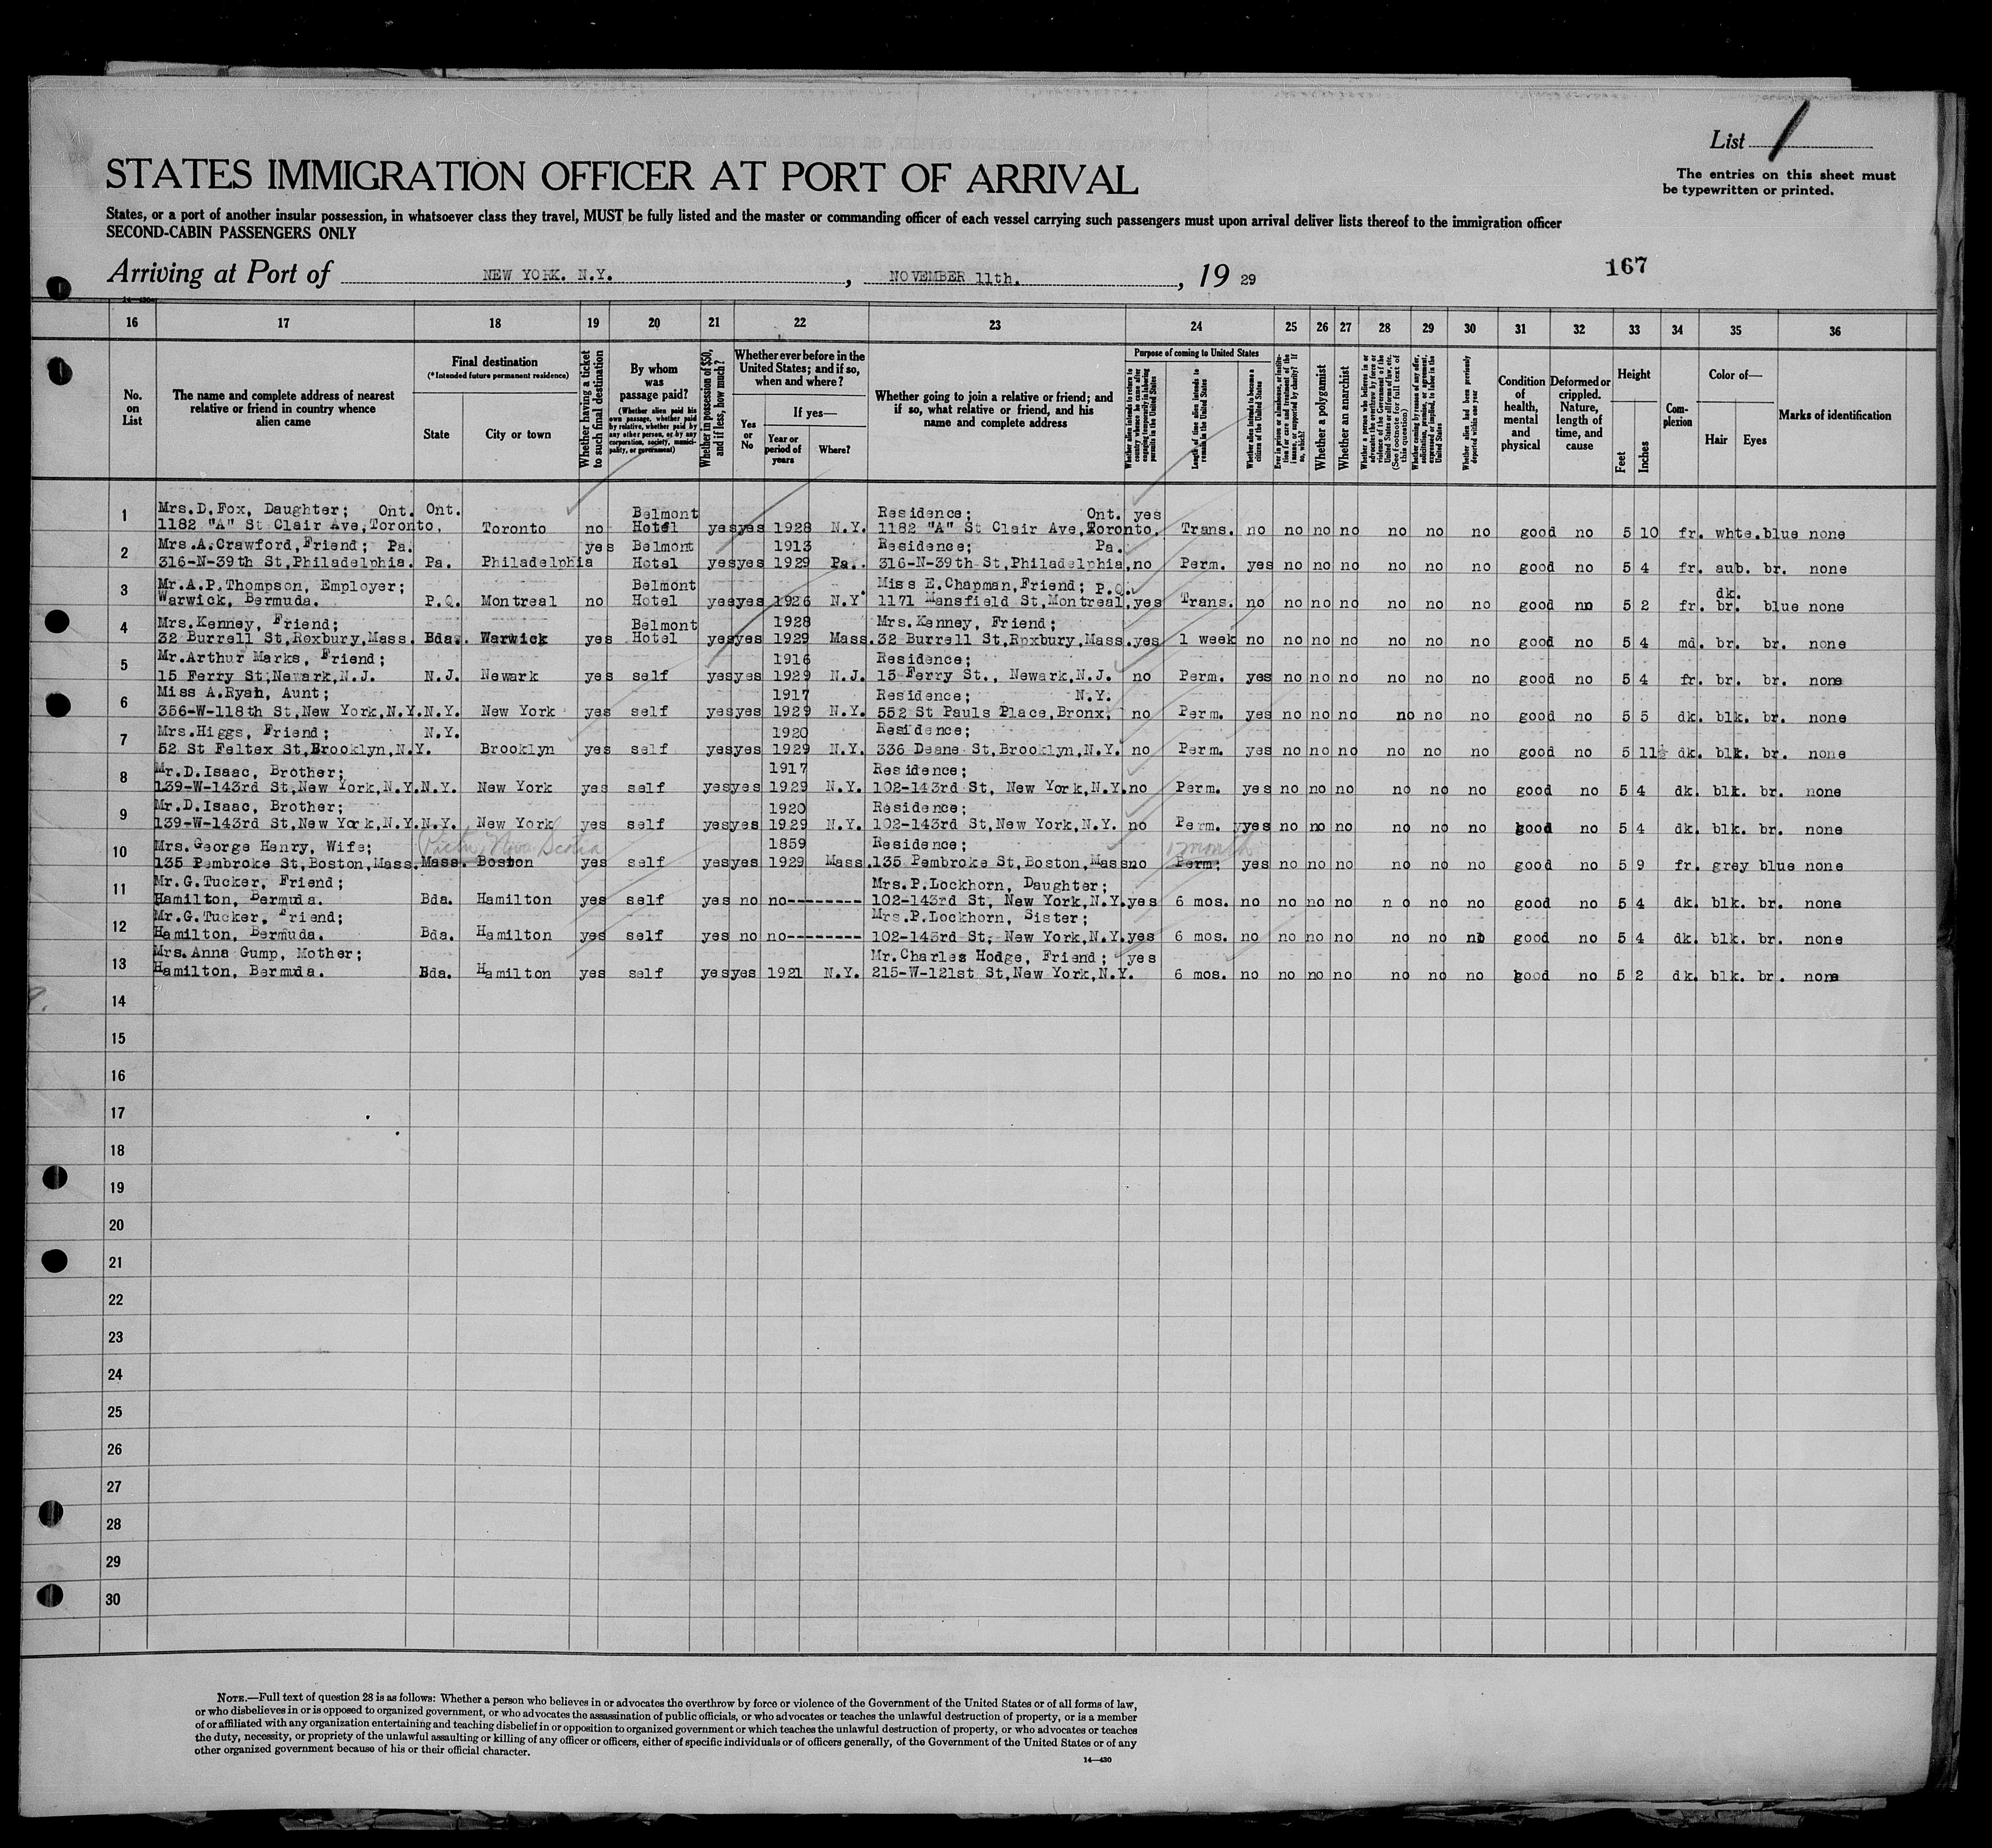 List 1
The entries on this sheet must
be typewritten or printed.
STATES IMMIGRATION OFFICER AT PORT OF ARRIVAL
States, or a port of another insular possession, in whatsoever class they travel, MUST be fully listed and the master or commanding officer of each vessel carrying such passengers must upon arrival deliver lists thereof to the immigration officer
SECOND-CABIN PASSENGERS ONLY
Arriving at Port of NEW YORK. N.Y. , NOVEMBER 11th. , 19 29
167
14—430
16 17 18 19 20 21 22 23 24 25 26 27 28 29 30 31 32 33 34 35 36
No. on List
The name and complete address of nearest relative or friend in country whence alien came
Final destination
(*Intended future permanent residence)
State
City or town
Whether having a ticket to such final destination
By whom was passage paid?
(Whether alien paid his own passage, whether paid by relative, whether paid by any other person, or by any corporation, society, municipality, or government)
Whether in possession of $50, and if less, how much?
Whether ever before in the United States; and if so, when and where?
Yes or No
If yes—
Year or period of years
Where?
Whether going to join a relative or friend; and if so, what relative or friend, and his name and complete address
Purpose of coming to United States
Whether alien intends to return to country whence he came after engaging temporarily in laboring pursuits in the United States
Length of time alien intends to remain in the United States
Whether alien intends to become a citizen of the United States
Ever in prison or almshouse, or institution for care and treatment of the insane, or supported by charity? If so, which?
Whether a polygamist
Whether an anarchist
Whether a person who believes in or advocates the overthrow by force or violence of the Government of the United States or all forms of law, etc. (See footnote for full text of this question)
Whether coming by reason of any offer, solicitation, promise, or agreement, expressed or implied, to labor in the United States
Whether alien had been previously deported within one year
Condition of health, mental and physical
Deformed or crippled. Nature, length of time, and cause
Height
Feet
Inches
Complexion
Color of—
Hair
Eyes
Marks of identification
1 Mrs.D.Fox, Daughter; Ont. Ont. Belmont Residence; Ont. yes
1182 "A" St Clair Ave,Toronto. Toronto no Hotel yes yes 1928 N.Y. 1182 "A" St Clair Ave,Toronto. Trans. no no no no no no no good no 5 10 fr. whte. blue none
2 Mrs.A.Crawford,Friend; Pa. yes Belmont 1913 Residence; Pa.
316-N-39th St,Philadelphia. Pa. Philadelphia Hotel yes yes 1929 Pa.. 316-N-39th St,Philadelphia, no Perm. yes no no no no no no good no 5 4 fr. aub. br. none
3 Mr.A.P.Thompson, Employer; Belmont Miss E.Chapman,Friend; P.Q. dk.
Warwick, Bermuda. P.Q. Montreal no Hotel yes yes 1926 N.Y. 1171 Mansfield St,Montreal, yes Trans. no no no no no no no good no 5 2 fr. br. blue none
4 Mrs.Kenney, Friend; Belmont 1928 Mrs.Kenney, Friend;
32 Burrell St,Roxbury,Mass. Bda. Warwick yes Hotel yes yes 1929 Mass. 32 Burrell St,Roxbury,Mass. yes 1 week no no no no no no no good no 5 4 md. br. br. none
5 Mr.Arthur Marks, Friend; 1916 Residence;
15 Ferry St;Newark,N.J. N.J. Newark yes self yes yes 1929 N.J. 15 Ferry St., Newark,N.J. no Perm. yes no no no no no no good no 5 4 fr. br. br. none
6 Miss A.Ryan, Aunt; 1917 Residence; N.Y.
356-W-118th St,New York,N.Y. N.Y. New York yes self yes yes 1929 N.Y. 552 St Pauls Place,Bronx, no Perm. yes no no no no no no good no 5 5 dk. blk. br. none
7 Mrs.Higgs, Friend; N.Y. 1920 Residence;
52 St Feltex St,Brooklyn,N.Y. Brooklyn yes self yes yes 1929 N.Y. 336 Deane St,Brooklyn,N.Y. no Perm. yes no no no no no no good no 5 11½ dk. blk. br. none
8 Mr.D.Isaac, Brother; 1917 Residence;
139-W-143rd St,New York,N.Y. N.Y. New York yes self yes yes 1929 N.Y. 102-143rd St, New York,N.Y. no Perm. yes no no no no no no good no 5 4 dk. blk. br. none
9 Mr.D.Isaac, Brother; 1920 Residence;
139-W-143rd St,New York,N.Y. N.Y. New York yes self yes yes 1929 N.Y. 102-143rd St,New York,N.Y. no Perm. yes no no no no no no good no 5 4 dk. blk. br. none
10 Mrs.George Henry, Wife; Pictou, Nova Scotia 1859 Residence; 1 month
135 Pembroke St,Boston,Mass. Mass. Boston yes self yes yes 1929 Mass. 135 Pembroke St,Boston,Mass no Perm; yes no no no no no no good no 5 9 fr. grey blue none
11 Mr.G.Tucker, Friend; Mrs.P.Lockhorn, Daughter;
Hamilton, Bermuda. Bda. Hamilton yes self yes no no-------- 102-143rd St, New York,N.Y. yes 6 mos. no no no no n o no no good no 5 4 dk. blk. br. none
12 Mr.G.Tucker, Friend; Mrs.P.Lockhorn, Sister;
Hamilton, Bermuda. Bda. Hamilton yes self yes no no-------- 102-143rd St, New York,N.Y. yes 6 mos. no no no no no no no good no 5 4 dk. blk. br. none
13 Mrs.Anna Gump, Mother; Mr.Charles Hodge, Friend; yes
Hamilton, Bermuda. Bda. Hamilton yes self yes yes 1921 N.Y. 215-W-121st St,New York,N.Y. 6 mos. no no no no no no no good no 5 2 dk. blk. br. none
14
15
16
17
18
19
20
21
22
23
24
25
26
27
28
29
30
NOTE.—Full text of question 28 is as follows: Whether a person who believes in or advocates the overthrow by force or violence of the Government of the United States or of all forms of law,
or who disbelieves in or is opposed to organized government, or who advocates the assassination of public officials, or who advocates or teaches the unlawful destruction of property, or is a member
of or affiliated with any organization entertaining and teaching disbelief in or opposition to organized government or which teaches the unlawful destruction of property, or who advocates or teaches
the duty, necessity, or propriety of the unlawful assaulting or killing of any officer or officers, either of specific individuals or of officers generally, of the Government of the United States or of any
other organized government because of his or their official character.
14—430